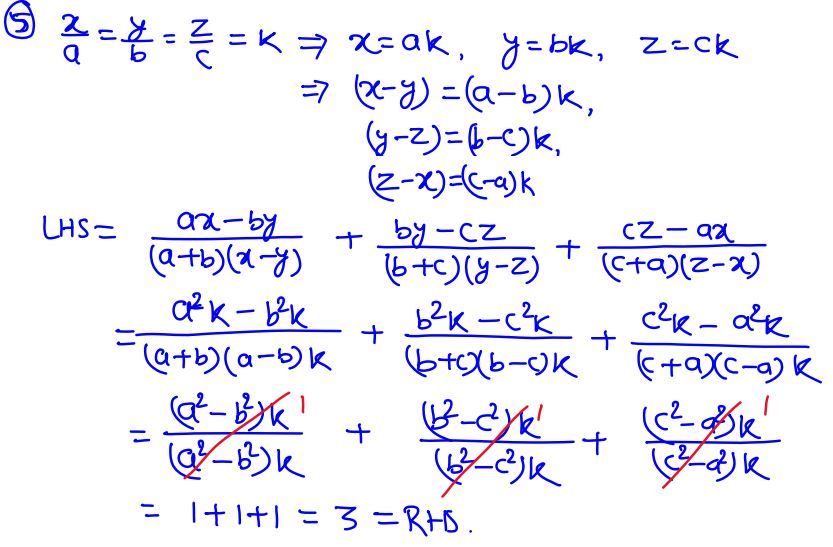 ⑤ x/a = y/b = z/c = k ⇒ x=ak, y=bk, z=ck
⇒ (x-y) = (a-b)k,
(y-z)=(b-c)k,
(z-x)=(c-a)k
LHS = (ax-by)/((a+b)(x-y)) + (by-cz)/((b+c)(y-z)) + (cz-ax)/((c+a)(z-x))
= (a²k - b²k)/((a+b)(a-b)k) + (b²k - c²k)/((b+c)(b-c)k) + (c²k - a²k)/((c+a)(c-a)k)
= (a²-b²)k/(a²-b²)k 1 + (b²-c²)k/(b²-c²)k 1 + (c²-a²)k/(c²-a²)k 1
= 1+1+1 = 3 = RHS.